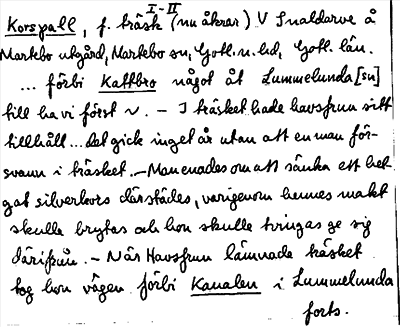 I-II
Korspall, f. träsk (nu åkrar) V Snaldarve å
Martebo utgård, Martebo sn, Gotl. n. hd, Gotl. län.
... förbi Kattbro något åt Lummelunda [sn]
till ha vi först ~. - I träsket hade havsfrun sitt
tillhåll... Det gick inget år utan att en man för-
svann i träsket. - Man enades om att sänka ett hel-
gat silverkors därstädes, varigenom hennes makt
skulle brytas och hon skulle tvingas ge sig
därifrån. - När Havsfrun lämnade träsket
tog hon vägen förbi Kanalen i Lummelunda
forts.